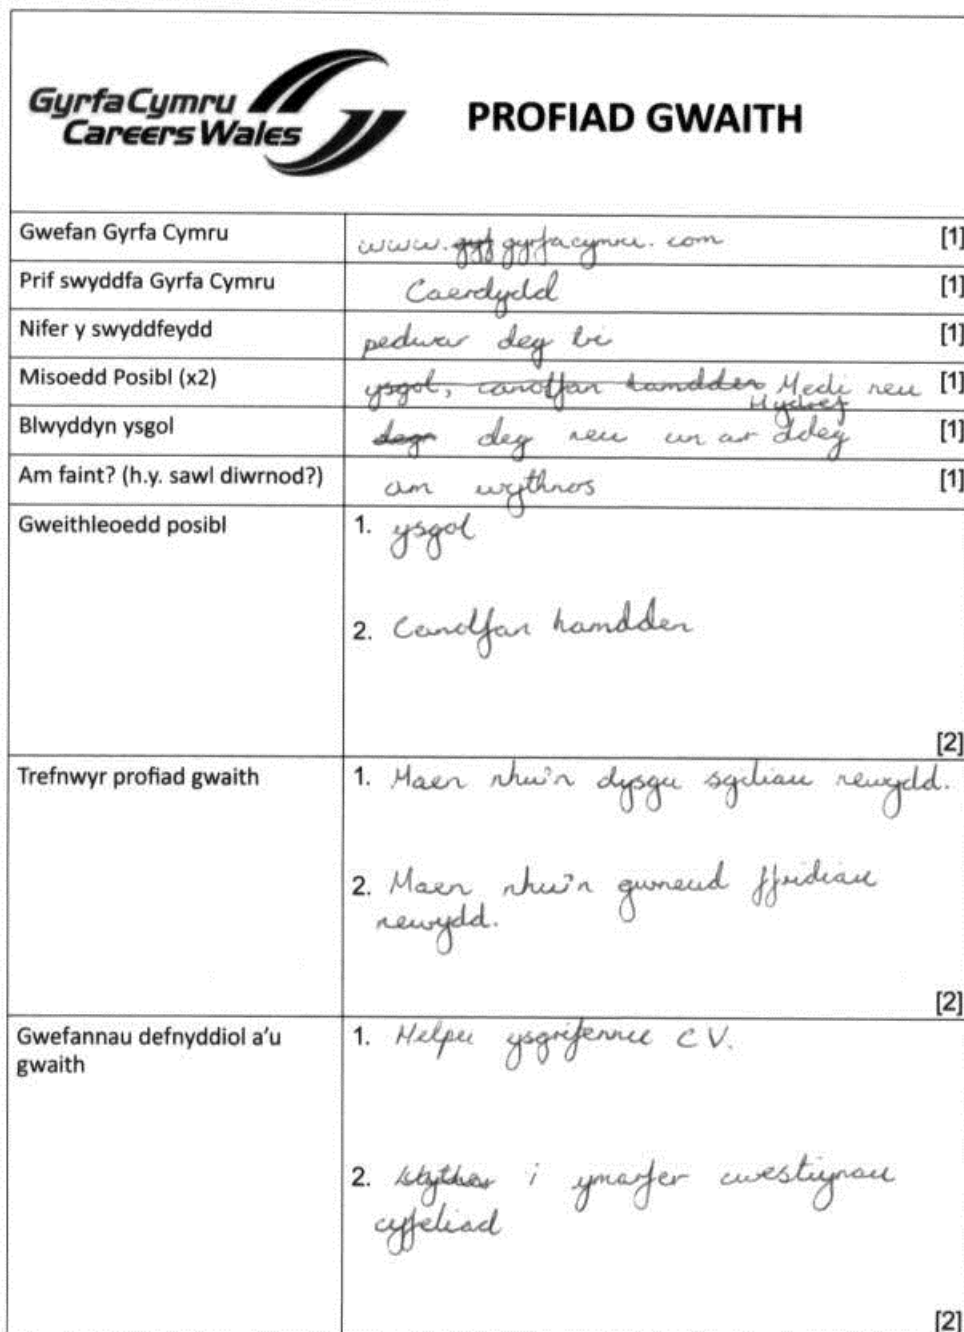 Gyrfa Cymru
Careers Wales
PROFIAD GWAITH
Gwefan Gyrfa Cymru
www.gyrfacymru.com [1]
Prif swyddfa Gyrfa Cymru
Caerdydd [1]
Nifer y swyddfeydd
pedwar deg tri [1]
Misoedd Posibl (x2)
ysgol, canolfan hamdden Medi neu [1]
Hydref
Blwyddyn ysgol
deg neu un ar ddeg [1]
Am faint? (h.y. sawl diwrnod?)
am wythnos [1]
Gweithleoedd posibl
1. ysgol
2. Canolfan hamdden
[2]
Trefnwyr profiad gwaith
1. Maen nhw'n dysgu sgiliau newydd.
2. Maen nhw'n gwneud ffridiau
newydd.
[2]
Gwefannau defnyddiol a'u
gwaith
1. Helpu ysgrifennu CV.
2. i ymarfer cwestiynau
cyffeliad
[2]